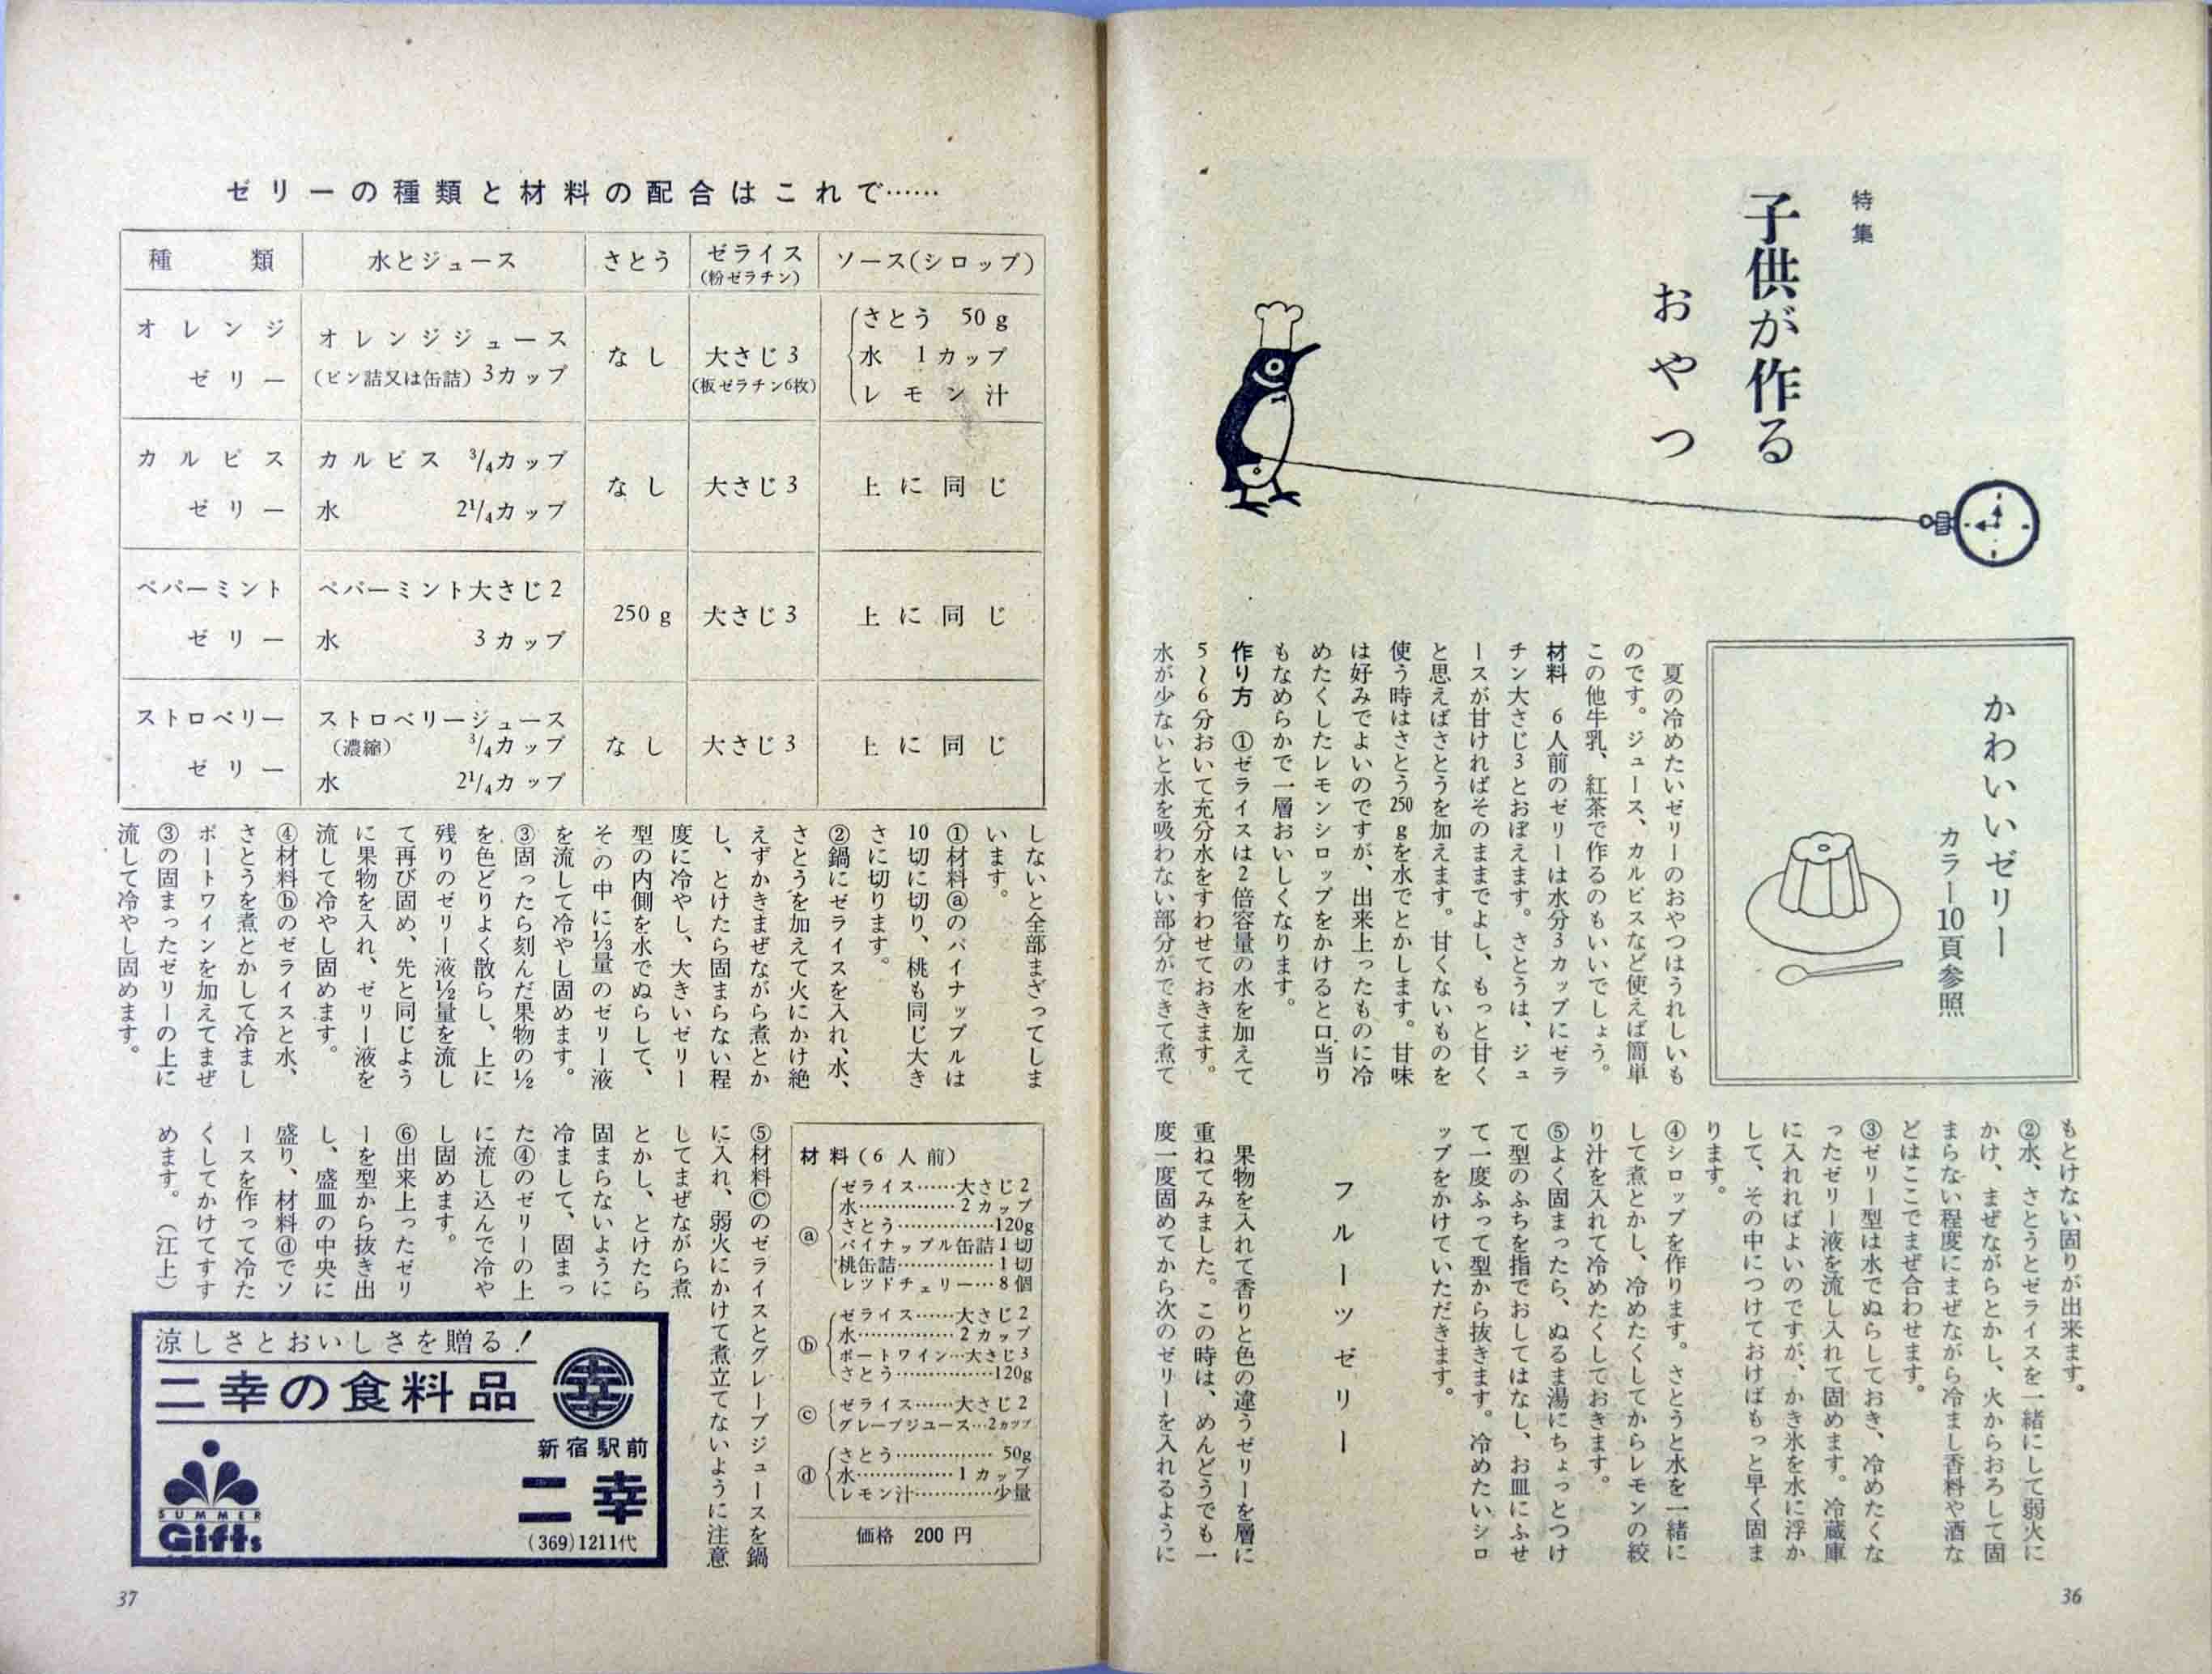 特集
子供が作る
おやつ
かわいいゼリー
カラー10頁参照
夏の冷めたいゼリーのおやつはうれしいも
のです。ジュース、カルピスなど使えば簡単
この他牛乳、紅茶で作るのもいいでしょう。
材料　6人前のゼリーは水分3カップにゼラ
チン大さじ3とおぼえます。さとうは、ジュ
ースが甘ければそのままでよし、もっと甘く
と思えばさとうを加えます。甘くないものを
使う時はさとう250gを水でとかします。甘味
は好みでよいのですが、出来上ったものに冷
めたくしたレモンシロップをかけると口当り
もなめらかで一層おいしくなります。
作り方　①ゼライスは2倍容量の水を加えて
5〜6分おいて充分水をすわせておきます。
水が少ないと水を吸わない部分ができて煮て
もとけない固りが出来ます。
②水、さとうとゼライスを一緒にして弱火に
かけ、まぜながらとかし、火からおろして固
まらない程度にまぜながら冷まし香料や酒な
どはここでまぜ合わせます。
③ゼリー型は水でぬらしておき、冷めたくな
ったゼリー液を流し入れて固めます。冷蔵庫
に入れればよいのですが、かき氷を水に浮か
して、その中につけておけばもっと早く固ま
ります。
④シロップを作ります。さとうと水を一緒に
して煮とかし、冷めたくしてからレモンの絞
り汁を入れて冷めたくしておきます。
⑤よく固まったら、ぬるま湯にちょっとつけ
て型のふちを指でおしてはなし、お皿にふせ
て一度ふって型から抜きます。冷めたいシロ
ップをかけていただきます。
フルーツゼリー
果物を入れて香りと色の違うゼリーを層に
重ねてみました。この時は、めんどうでも一
度一度固めてから次のゼリーを入れるように
36
ゼリーの種類と材料の配合はこれで……
種類　水とジュース　さとう　ゼライス(粉ゼラチン)　ソース(シロップ)
オレンジゼリー　オレンジジュース(ビン詰又は缶詰) 3カップ　なし　大さじ3(板ゼラチン6枚)　さとう 50g 水 1カップ レモン汁
カルピスゼリー　カルピス 3/4カップ 水 2 1/4カップ　なし　大さじ3　上に同じ
ペパーミントゼリー　ペパーミント大さじ2 水 3カップ　250g　大さじ3　上に同じ
ストロベリーゼリー　ストロベリージュース(濃縮) 3/4カップ 水 2 1/4カップ　なし　大さじ3　上に同じ
しないと全部まざってしま
います。
①材料ⓐのパイナップルは
10切に切り、桃も同じ大き
さに切ります。
②鍋にゼライスを入れ、水、
さとうを加えて火にかけ絶
えずかきまぜながら煮とか
し、とけたら固まらない程
度に冷やし、大きいゼリー
型の内側を水でぬらして、
その中に1/3量のゼリー液
を流して冷やし固めます。
③固ったら刻んだ果物の1/2
を色どりよく散らし、上に
残りのゼリー液1/2量を流し
て再び固め、先と同じよう
に果物を入れ、ゼリー液を
流して冷やし固めます。
④材料ⓑのゼライスと水、
さとうを煮とかして冷まし
ポートワインを加えてまぜ
③の固まったゼリーの上に
流して冷やし固めます。
材料(6人前)
ⓐ
ゼライス……大さじ2
水……………2カップ
さとう……………120g
パイナップル缶詰1切
桃缶詰……………1切
レッドチェリー…8個
ⓑ
ゼライス……大さじ2
水……………2カップ
ポートワイン…大さじ3
さとう……………120g
ⓒ
ゼライス……大さじ2
グレープジュース…2カップ
ⓓ
さとう……………50g
水……………1カップ
レモン汁…………少量
価格　200円
⑤材料Ⓒのゼライスとグレープジュースを鍋
に入れ、弱火にかけて煮立てないように注意
してまぜながら煮
とかし、とけたら
固まらないように
冷まして、固まっ
た④のゼリーの上
に流し込んで冷や
し固めます。
⑥出来上ったゼリ
ーを型から抜き出
し、盛皿の中央に
盛り、材料ⓓでソ
ースを作って冷た
くしてかけてすす
めます。（江上）
涼しさとおいしさを贈る！
二幸の食料品
幸
新宿駅前
二幸
(369)1211代
SUMMER
Gifts
37